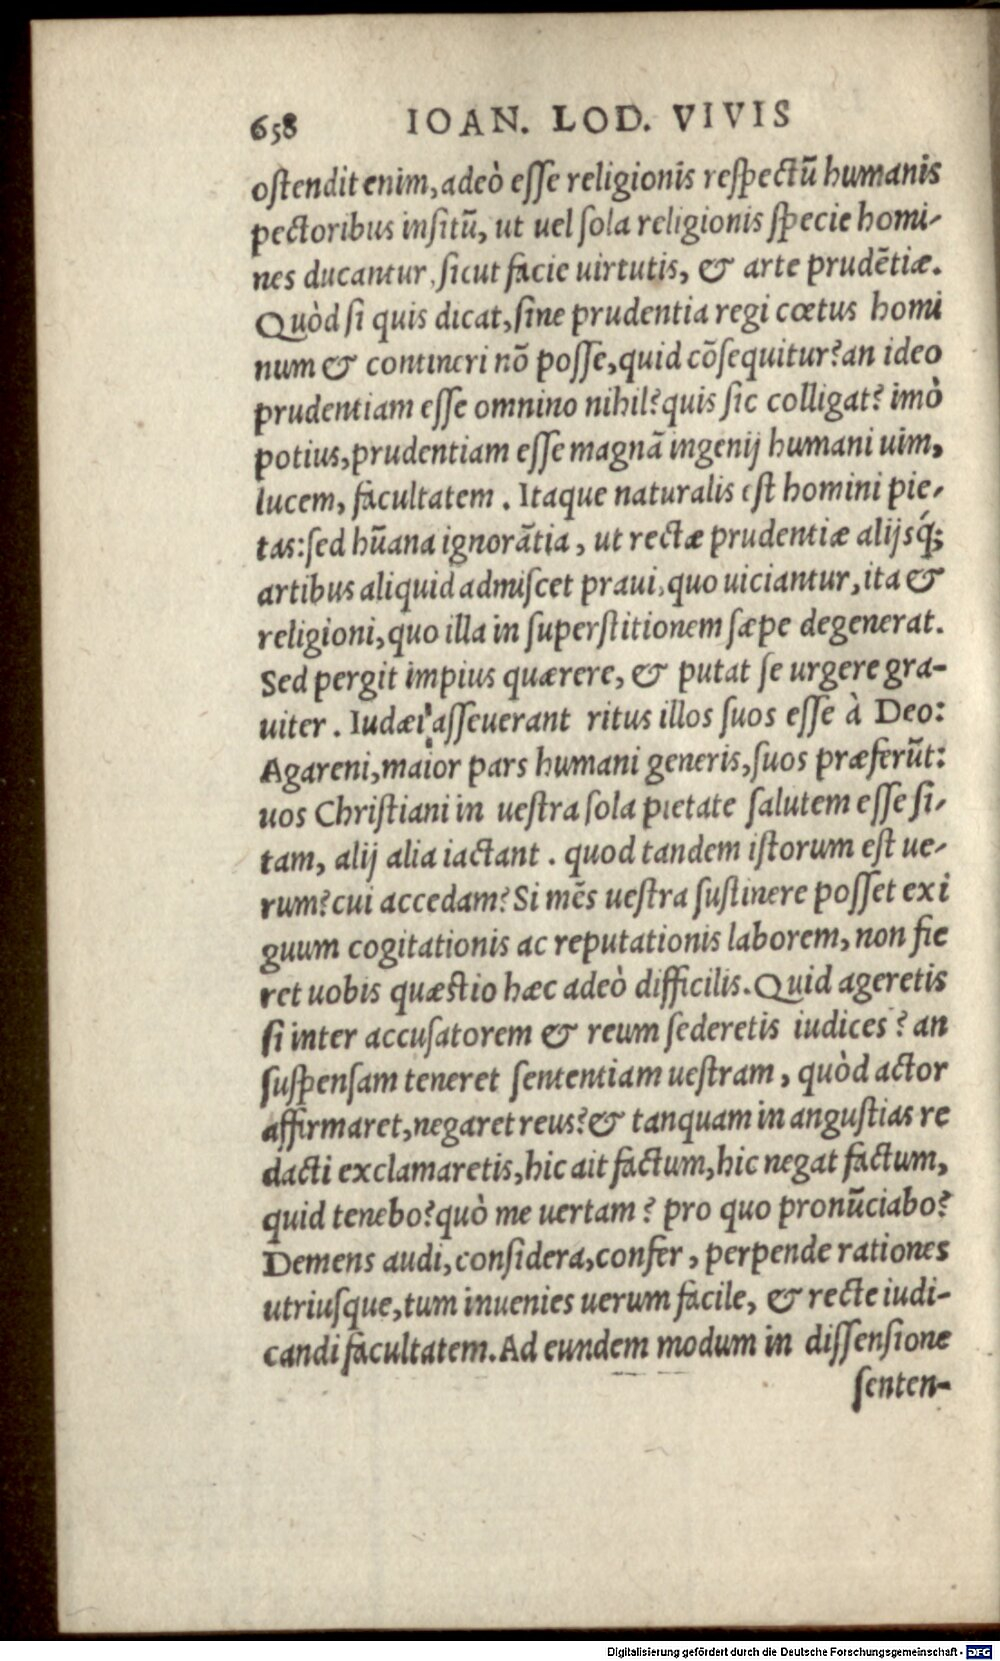 658 IOAN. LOD. VIVIS
ostendit enim, adeò esse religionis respectū humanis
pectoribus insitū, ut uel sola religionis specie homi-
nes ducantur, sicut facie uirtutis, & arte prudētiæ.
Quòd si quis dicat, sine prudentia regi cœtus homi
num & contineri nō posse, quid cōsequitur? an ideo
prudentiam esse omnino nihil? quis sic colligat? imò
potius, prudentiam esse magnā ingenij humani uim,
lucem, facultatem. Itaque naturalis est homini pie-
tas: sed hūana ignorātia, ut rectæ prudentiæ alijsq́;
artibus aliquid admiscet praui, quo uiciantur, ita &
religioni, quo illa in superstitionem sæpe degenerat.
Sed pergit impius quærere, & putat se urgere gra-
uiter. Iudæi asseuerant ritus illos suos esse à Deo:
Agareni, maior pars humani generis, suos præferūt:
uos Christiani in uestra sola pietate salutem esse si-
tam, alij alia iactant. quod tandem istorum est ue-
rum? cui accedam? Si mēs uestra sustinere posset exi
guum cogitationis ac reputationis laborem, non fie
ret uobis quæstio hæc adeò difficilis. Quid ageretis
si inter accusatorem & reum sederetis iudices? an
suspensam teneret sententiam uestram, quòd actor
affirmaret, negaret reus? & tanquam in angustias re
dacti exclamaretis, hic ait factum, hic negat factum,
quid tenebo? quò me uertam? pro quo pronūciabo?
Demens audi, considera, confer, perpende rationes
utriusque, tum inuenies uerum facile, & recte iudi-
candi facultatem. Ad eundem modum in dissensione
senten-
Digitalisierung gefördert durch die Deutsche Forschungsgemeinschaft - DFG